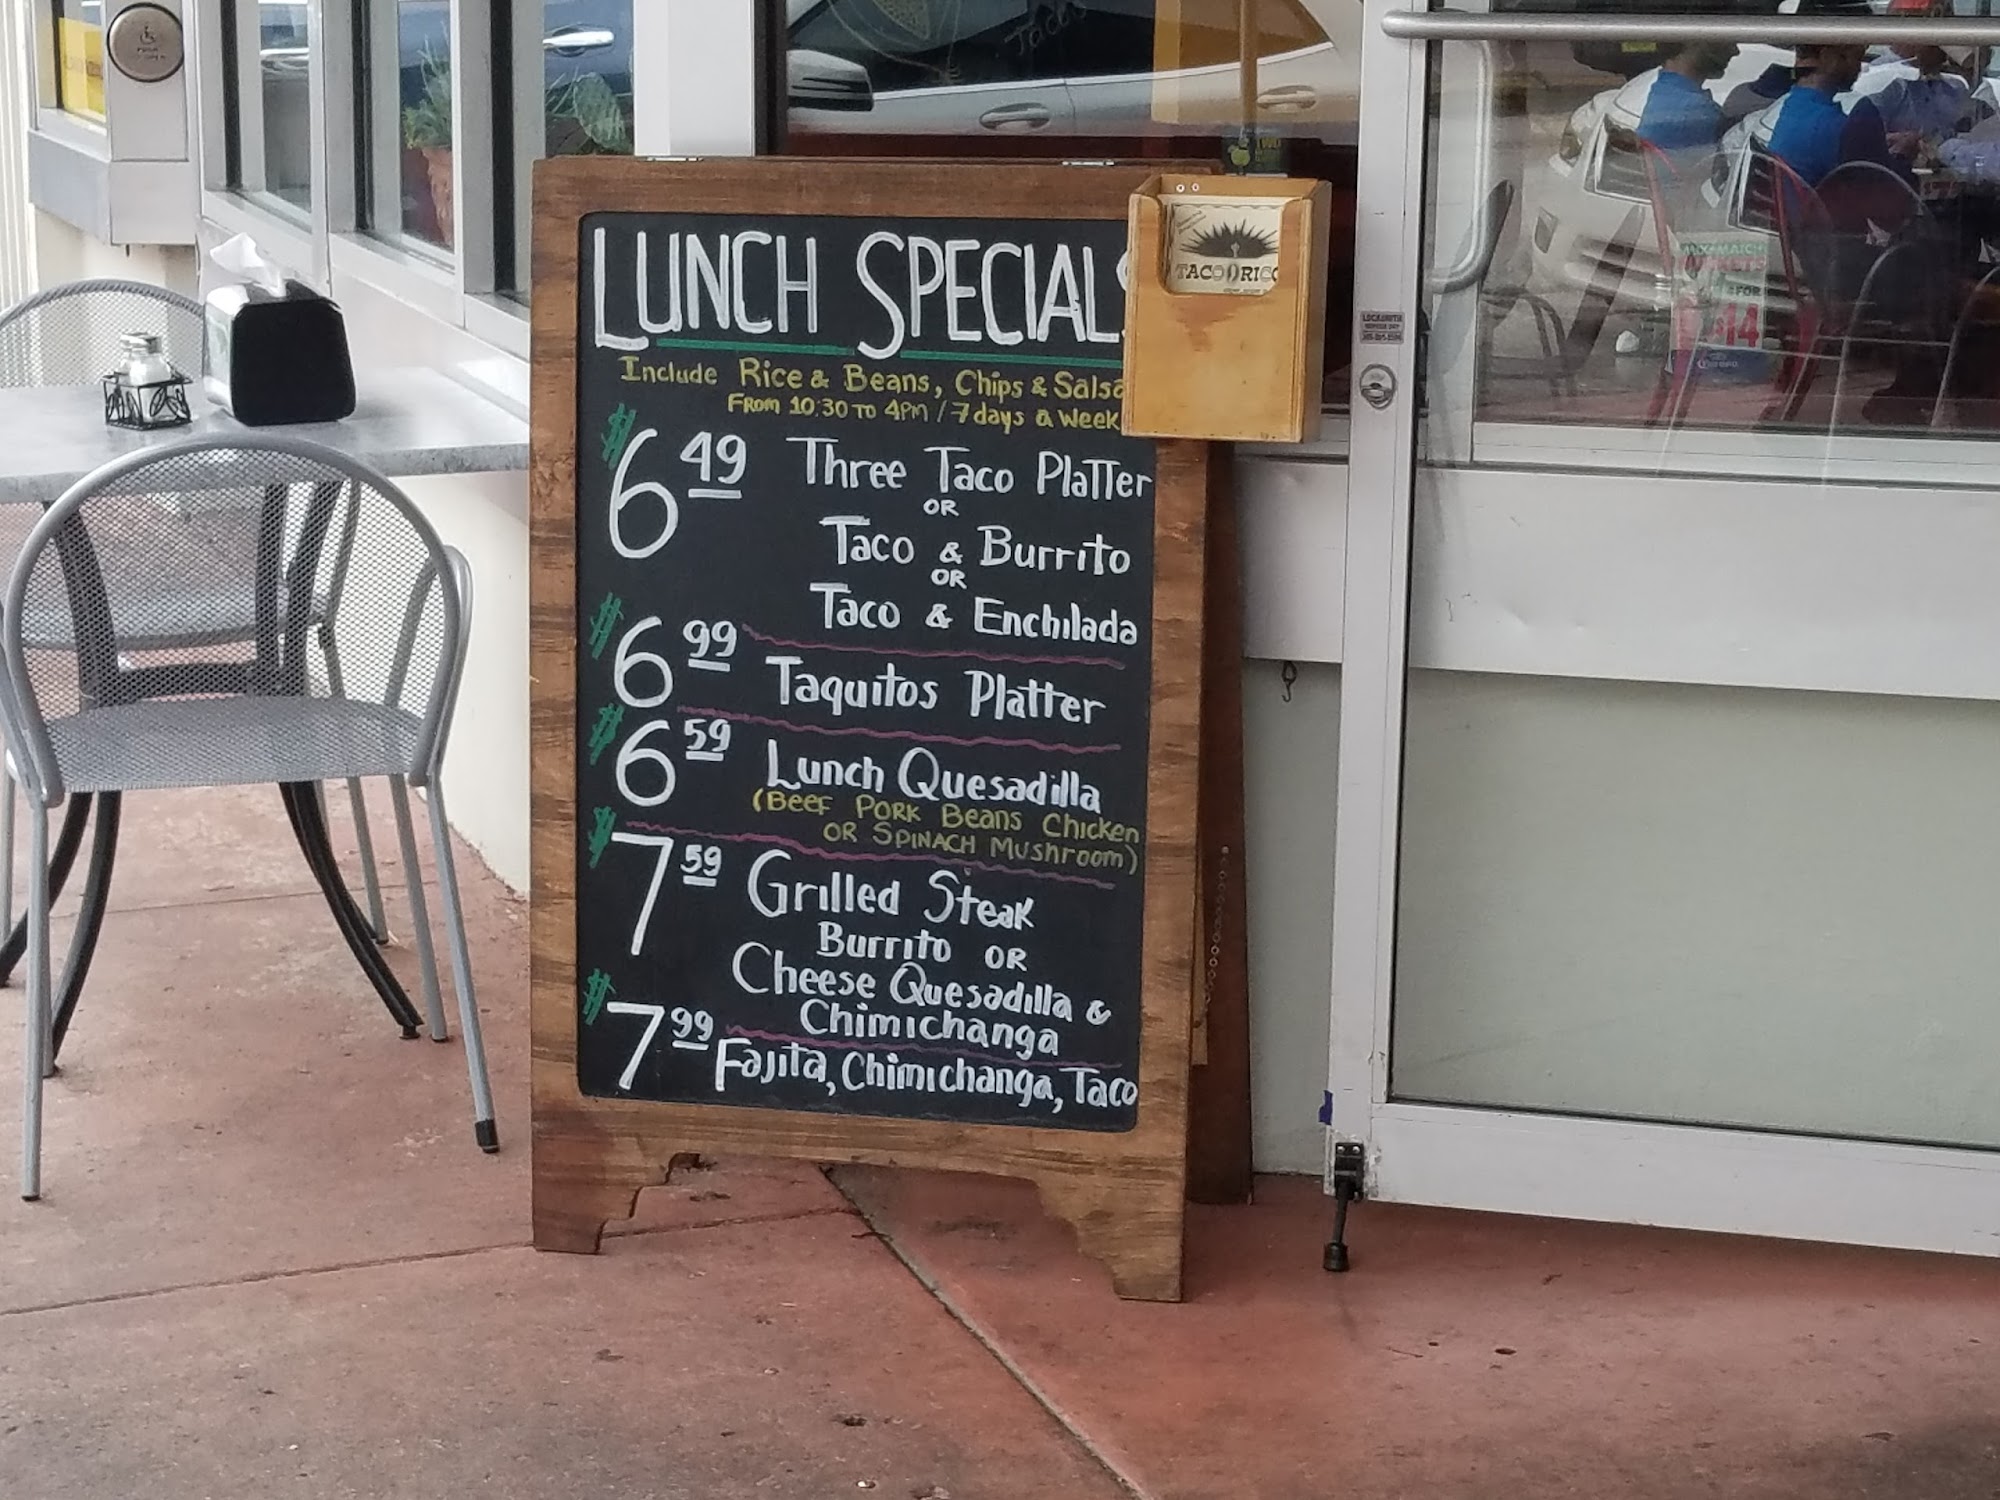 LUNCH SPECIALS
Include Rice & Beans, Chips & Salsa
From 10:30 to 4PM / 7 days a week
$6.49 Three Taco Platter
OR
Taco & Burrito
OR
Taco & Enchilada
$6.99 Taquitos Platter
$6.59 Lunch Quesadilla
(Beef Pork Beans Chicken
OR Spinach Mushroom)
$7.59 Grilled Steak
Burrito OR
Cheese Quesadilla &
Chimichanga
$7.99 Fajita, Chimichanga, Taco
TACO RICO
LOCKSMITH
Tacos
FOR
$14
Corona